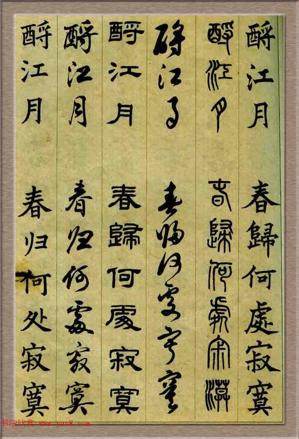 酹江月 春歸何處寂寞
酹江月 春歸何處寂寞
酹江月 春歸何處寂寞
酹江月 春歸何處寂寞
酹江月 春归何處寂寞
酹江月 春归何处寂寞